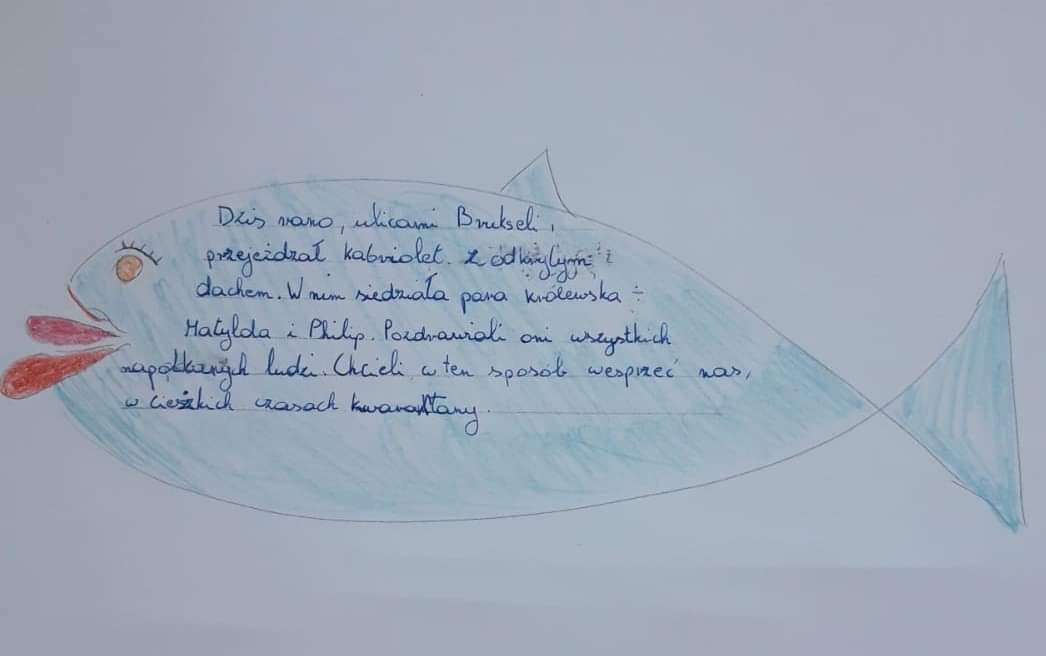 Dziś rano, ulicami Brukseli,
przejeżdzał kabriolet z odkrytym
dachem. W nim siedziała para królewska ÷
Matylda i Philip. Pozdrawiali oni wszystkich
napotkanych ludzi. Chcieli w ten sposób wesprzeć nas,
w cieszkich czasach kwarantany.